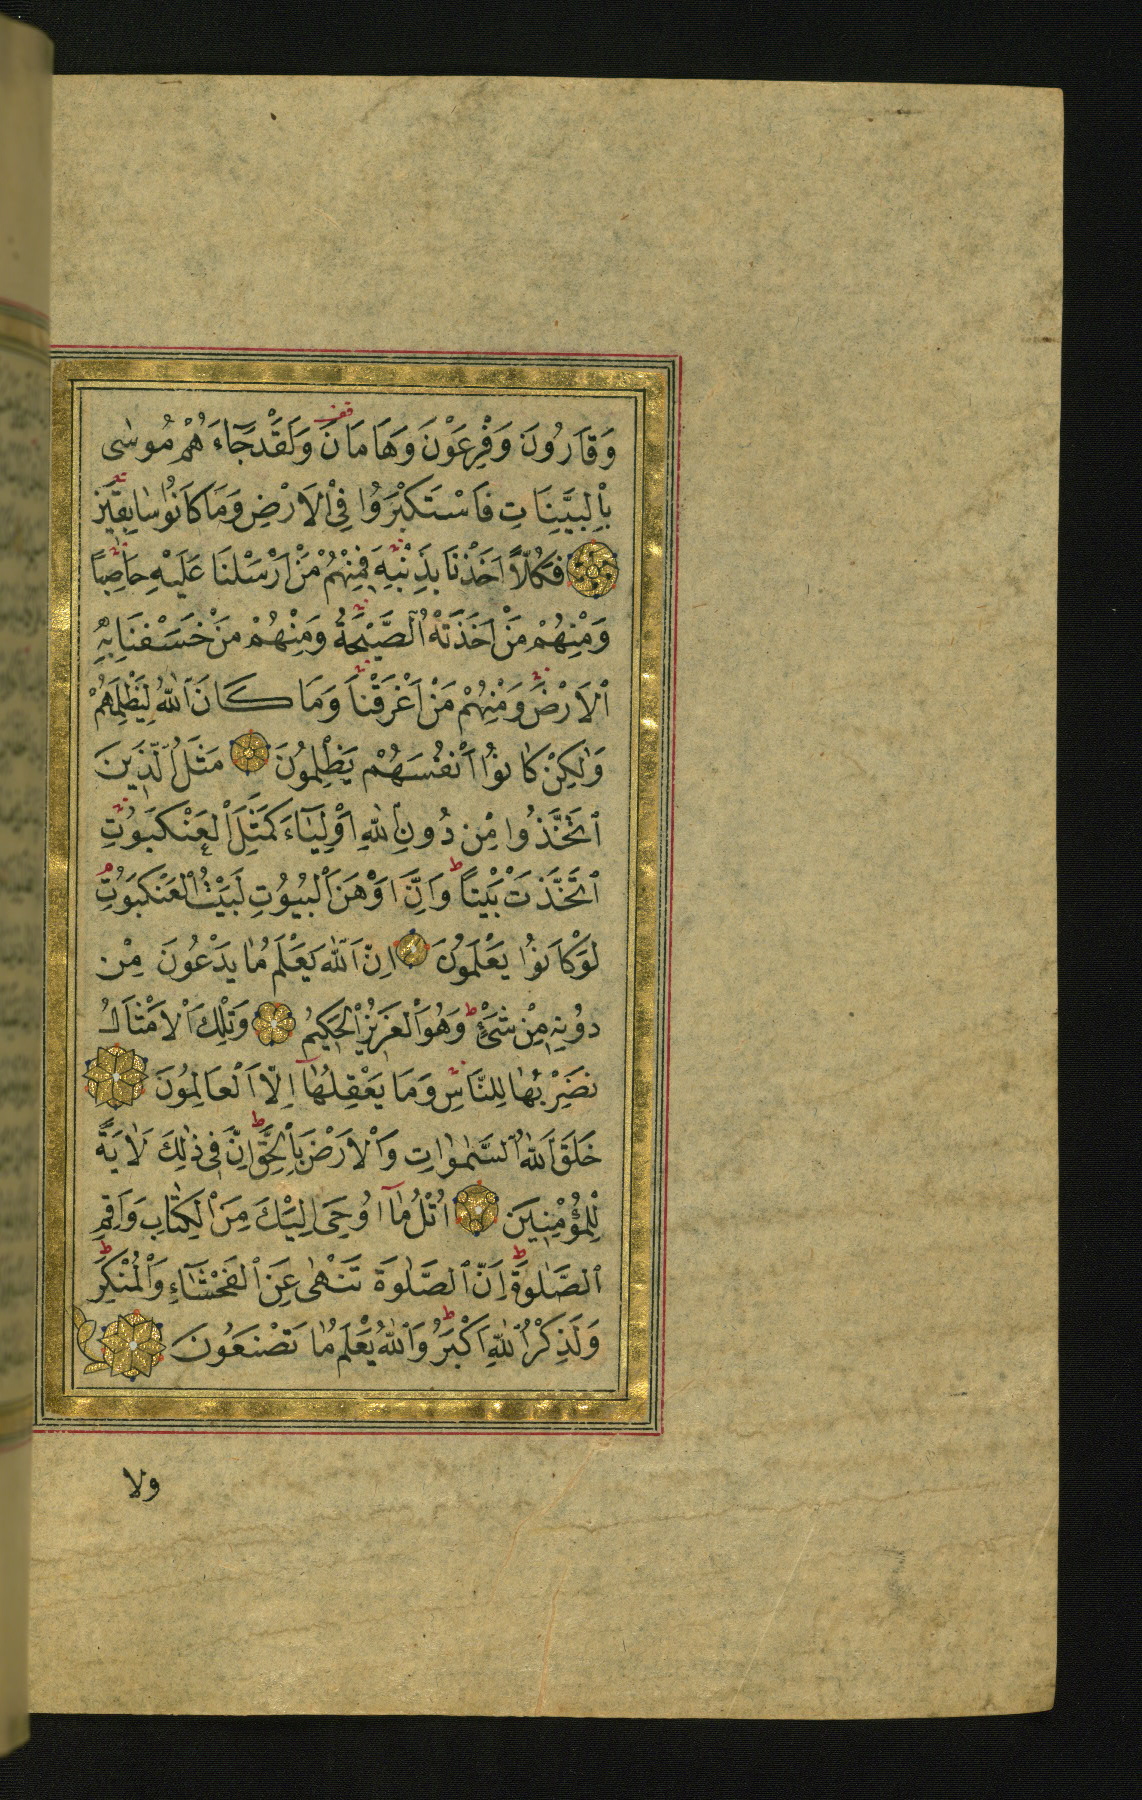 وَقَارُونَ وَفِرْعَوْنَ وَهَامَانَ وَلَقَدْ جَٓاءَهُمْ مُوسٰى
بِالْبَيِّنَاتِ فَاسْتَكْبَرُوا فِى الْاَرْضِ وَمَا كَانُوا سَابِقٖينَ
فَكُلًّا اَخَذْنَا بِذَنْبِهٖ فَمِنْهُمْ مَنْ اَرْسَلْنَا عَلَيْهِ حَاصِبًا
وَمِنْهُمْ مَنْ اَخَذَتْهُ الصَّيْحَةُ وَمِنْهُمْ مَنْ خَسَفْنَا بِهِ
الْاَرْضَ وَمِنْهُمْ مَنْ اَغْرَقْنَا وَمَا كَانَ اللّٰهُ لِيَظْلِمَهُمْ
وَلٰكِنْ كَانُوا اَنْفُسَهُمْ يَظْلِمُونَ مَثَلُ الَّذٖينَ
اتَّخَذُوا مِنْ دُونِ اللّٰهِ اَوْلِيَٓاءَ كَمَثَلِ الْعَنْكَبُوتِ
اتَّخَذَتْ بَيْتًا وَاِنَّ اَوْهَنَ الْبُيُوتِ لَبَيْتُ الْعَنْكَبُوتِ
لَوْ كَانُوا يَعْلَمُونَ اِنَّ اللّٰهَ يَعْلَمُ مَا يَدْعُونَ مِنْ
دُونِهٖ مِنْ شَیْءٍ وَهُوَ الْعَزٖيزُ الْحَكٖيمُ وَتِلْكَ الْاَمْثَالُ
نَضْرِبُهَا لِلنَّاسِ وَمَا يَعْقِلُهَٓا اِلَّا الْعَالِمُونَ
خَلَقَ اللّٰهُ السَّمٰوَاتِ وَالْاَرْضَ بِالْحَقِّ اِنَّ فٖى ذٰلِكَ لَاٰيَةً
لِلْمُؤْمِنٖينَ اُتْلُ مَٓا اُوحِىَ اِلَيْكَ مِنَ الْكِتَابِ وَاَقِمِ
الصَّلٰوةَ اِنَّ الصَّلٰوةَ تَنْهٰى عَنِ الْفَحْشَٓاءِ وَالْمُنْكَرِ
وَلَذِكْرُ اللّٰهِ اَكْبَرُ وَاللّٰهُ يَعْلَمُ مَا تَصْنَعُونَ
ولا